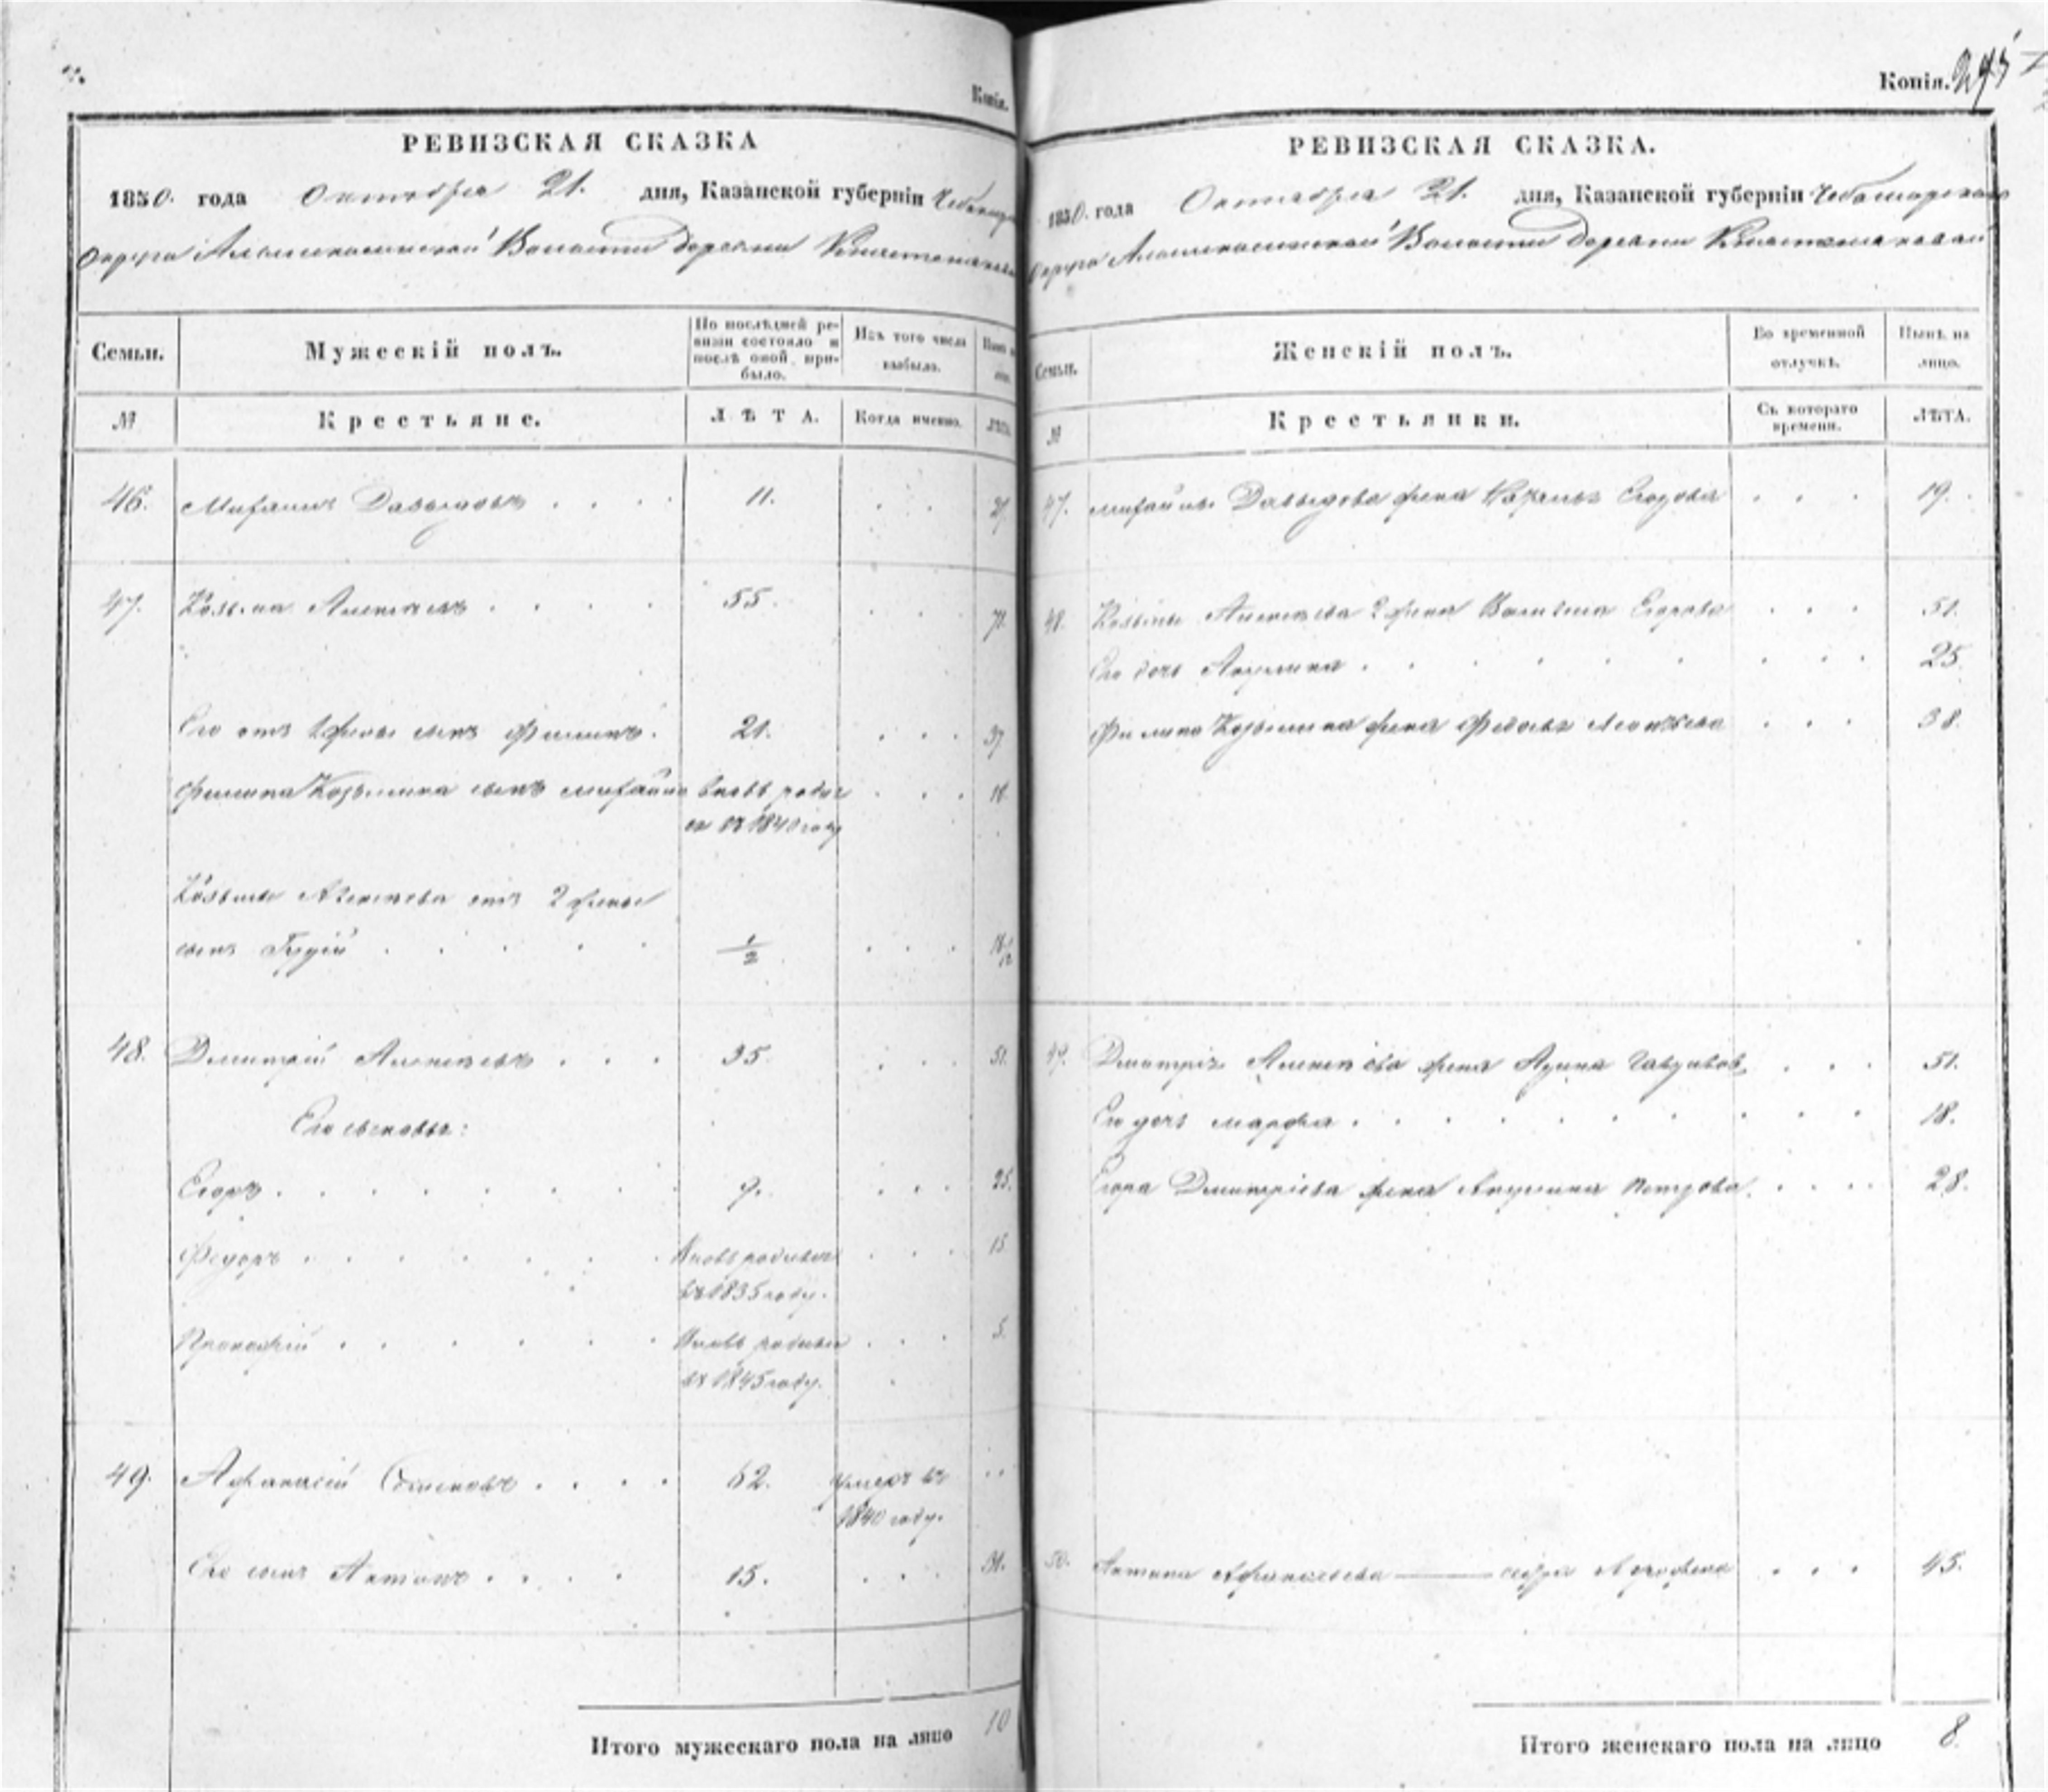 Копія.
РЕВИЗСКАЯ СКАЗКА
1850. года Октября 21. дня, Казанской губерніи
Округа Волости деревни
Семьи.
Мужескій полъ.
По послѣдней ре-
визіи состояло и
послѣ оной при-
было.
Изъ того числа
выбыло.
№
Крестьяне.
ЛѢТА.
Когда именно.
ЛѢТА.
46. Михаилъ Давыдовъ . . . . 11. . . 27
47. Козьма Алексѣевъ . . . . 55. . . . 71.
Его отъ 1 жены сынъ Филипъ. 21. . . . 37
Филипа Козьмина сынъ Михайло вновь родил . . . 10
ся въ 1840 году
Козьмы Алексѣева отъ 2 жены
сынъ . . . . . 1/2 . . .
48. Дмитрій Алексѣевъ . . . 35. . . . 51.
Его сыновья:
Егоръ . . . . . . . 9. . . . 25.
Федоръ . . . . . . Вновь родился . . . 15
въ 1835 году.
Прокофій . . . . . . Вновь родился . . . 5.
въ 1845 году.
49. Афанасій Семеновъ . . . . 62. умеръ въ . .
1840 году.
Его сынъ Антонъ . . . . 15. . . . 31.
Итого мужескаго пола на лицо 10
Копія. 295
РЕВИЗСКАЯ СКАЗКА.
1850. года Октября 21. дня, Казанской губерніи Чебоксарскаго
Округа Волости деревни
Семьи.
Женскій полъ.
Во временной
отлучкѣ.
Нынѣ на
лицо.
№
Крестьянки.
Съ котораго
времени.
ЛѢТА.
47. Михайлы Давыдова жена . . . 19.
48. Козьмы Алексѣева 2 жена Василиса Егорова . . . 51.
Его дочь Акулина . . . . . . . . . 25.
Филипа Козьмина жена Федосья . . . 38.
49. Дмитрія Алексѣева жена Арина . . . 51.
Его дочь Марфа . . . . . . . . . 18.
Егора Дмитріева жена Акулина Петрова . . . . 28.
50. Антона Афанасьева — сестра . . . 45.
Итого женскаго пола на лицо 8.